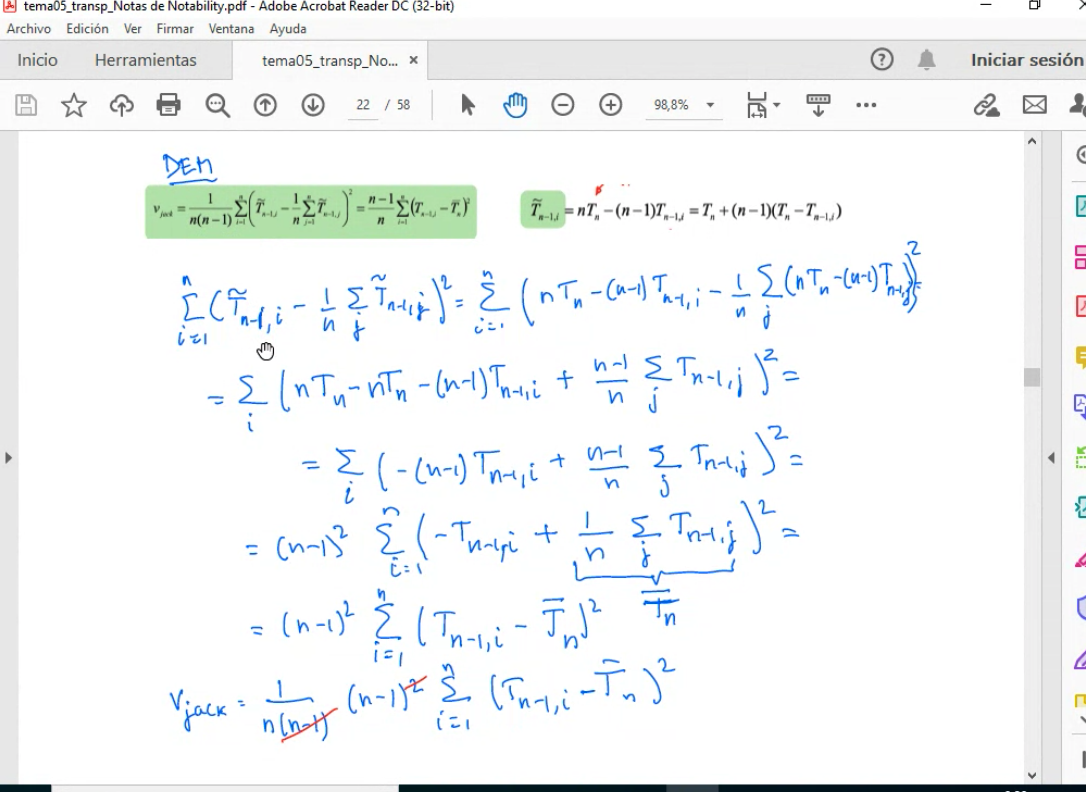 tema05_transp_Notas de Notability.pdf - Adobe Acrobat Reader DC (32-bit)
Archivo Edición Ver Firmar Ventana Ayuda
Inicio Herramientas tema05_transp_No... × ? Iniciar sesión
22 / 58 98,8%
DEM
v_{jack} = \frac{1}{n(n-1)} \sum_{i=1}^{n} \left( \tilde{T}_{n-1,i} - \frac{1}{n} \sum_{j=1}^{n} \tilde{T}_{n-1,j} \right)^2 = \frac{n-1}{n} \sum_{i=1}^{n} (T_{n-1,i} - \bar{T}_n)^2 \tilde{T}_{n-1,i} = nT_n - (n-1)T_{n-1,i} = T_n + (n-1)(T_n - T_{n-1,i})
\sum_{i=1}^{n} ( \tilde{T}_{n-1,i} - \frac{1}{n} \sum_j \tilde{T}_{n-1,j} )^2 = \sum_{i=1}^{n} ( nT_n - (n-1)T_{n-1,i} - \frac{1}{n} \sum_j (nT_n - (n-1)T_{n-1,j}) )^2 =
= \sum_i ( nT_n - nT_n - (n-1)T_{n-1,i} + \frac{n-1}{n} \sum_j T_{n-1,j} )^2 =
= \sum_i ( -(n-1) T_{n-1,i} + \frac{n-1}{n} \sum_j T_{n-1,j} )^2 =
= (n-1)^2 \sum_{i=1}^{n} ( -T_{n-1,i} + \frac{1}{n} \sum_j T_{n-1,j} )^2 =
= (n-1)^2 \sum_{i=1}^{n} ( T_{n-1,i} - \bar{T}_n )^2 \bar{T}_n
v_{jack} = \frac{1}{n(n-1)} (n-1)^2 \sum_{i=1}^{n} ( T_{n-1,i} - \bar{T}_n )^2